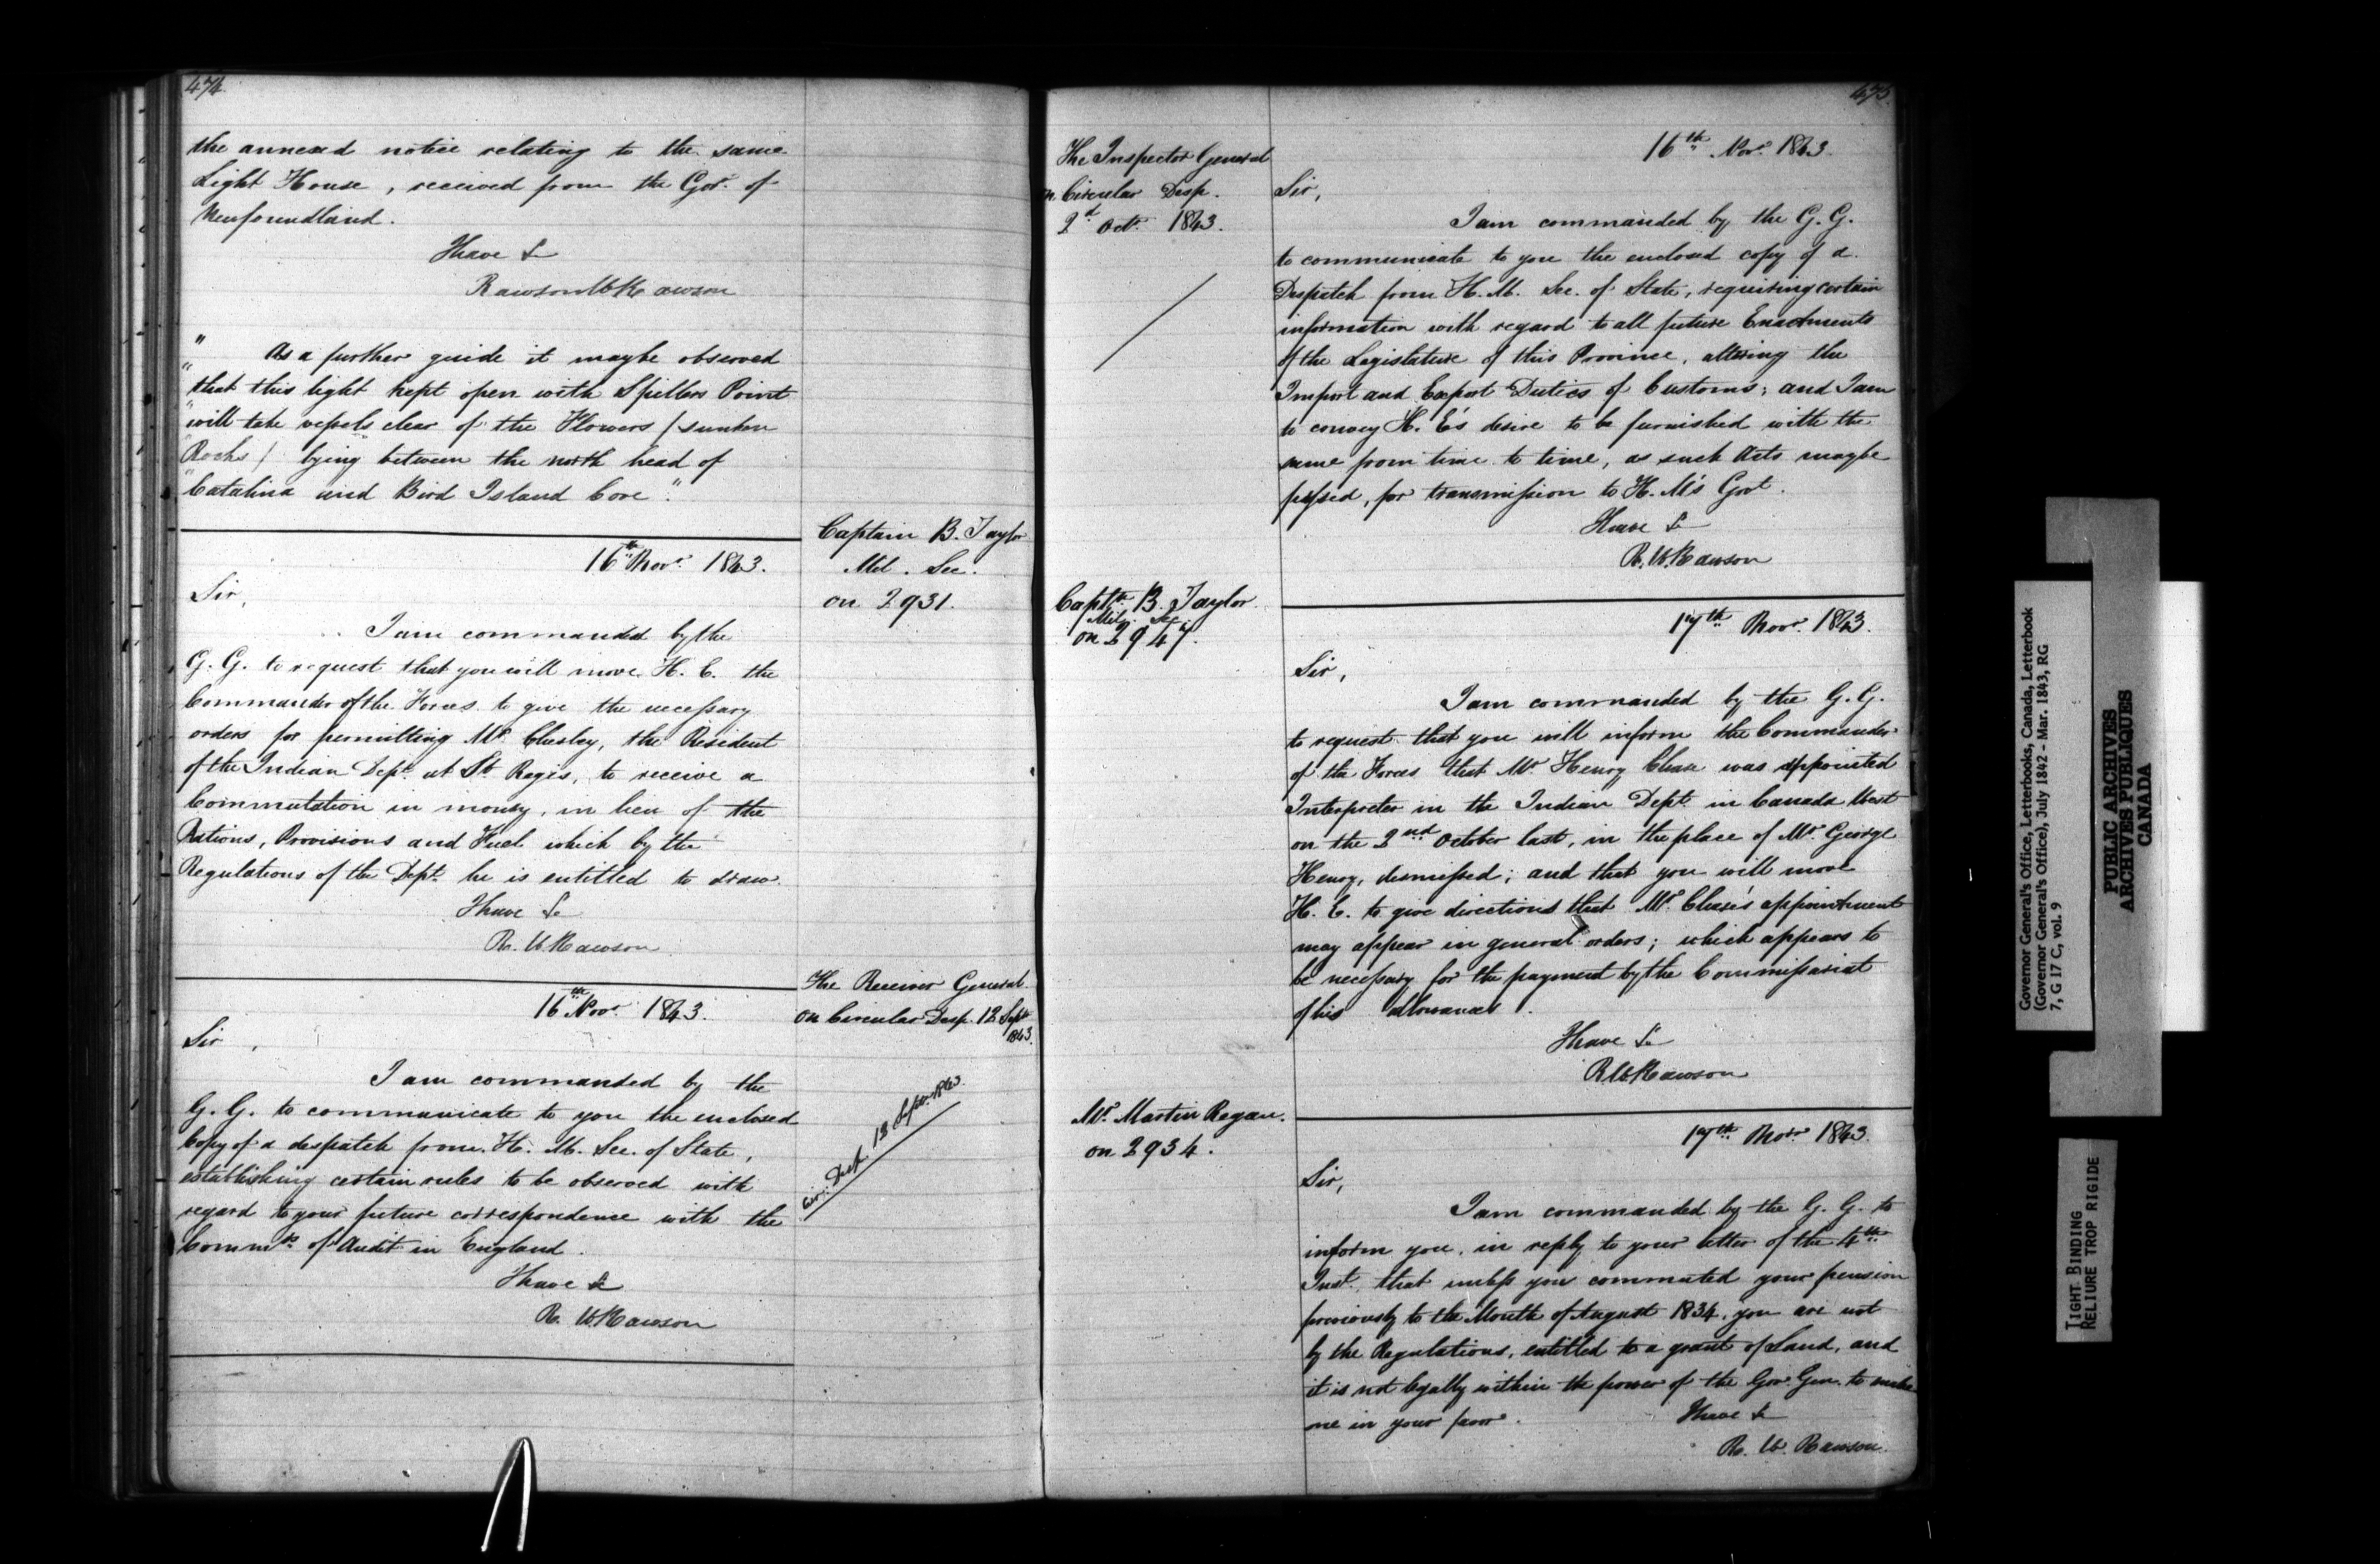 474
the annexed notice relating to the same
Light House, received from the Govr. of
Newfoundland.
I have &c
Rawson W. Rawson
" As a further guide it maybe observed
"that this light kept open with Spillers Point
"will take vessels clear of the Flowers (sunken
"Rocks) lying between the north head of
"Catalina and Bird Island Cove."
Captain B. Taylor
Mil. Sec.
on 2931.
16th Novr. 1843.
Sir,
I am commanded by the
G. G. to request that you will move H. E. the
Commander of the Forces to give the necessary
orders for permitting Mr. Chesley, the Resident
of the Indian Dept. at St. Regis, to receive a
Commutation in money, in lieu of the
Rations, Provisions and Fuel which by the
Regulations of the Dept. he is entitled to draw.
I have &c
R. W. Rawson
The Receiver General
on Circular Desp. 12 Septr
1843.
16th Novr. 1843.
Sir,
I am commanded by the
G. G. to communicate to you the enclosed
Copy of a despatch from H. M. Sec. of State,
establishing certain rules to be observed with
regard to your future correspondence with the
Commrs of Audit in England.
I have &c
R. W. Rawson
Cir. Desp. 12 Septr. 1843
475.
The Inspector General
on Circular Desp.
2d Octr. 1843.
16th Novr. 1843.
Sir,
I am commanded by the G. G.
to communicate to you the enclosed copy of a
Despatch from H. M. Sec. of State, requiring certain
information with regard to all future Enactments
of the Legislature of this Province, altering the
Import and Export Duties of Customs; and I am
to convey H. E's desire to be furnished with the
same from time to time, as such Acts maybe
passed, for transmission to H. M's Govt.
I have &c
R. W. Rawson
Captn. B. Taylor
Mil. Sec.
on 2947.
17th Novr. 1843.
Sir,
I am commanded by the G. G.
to request that you will inform the Commander
of the Forces that Mr. Henry Chase was appointed
Interpreter in the Indian Dept. in Canada West
on the 2nd October last, in the place of Mr. George
Henry, dismissed; and that you will move
H. E. to give directions that Mr. Chase's appointment
may appear in general orders; which appears to
be necessary for the payment by the Commissariat
of his allowances.
I have &c
R W Rawson
Mr. Martin Regan.
on 2934.
17th Novr. 1843.
Sir,
I am commanded by the G. G. to
inform you, in reply to your letter of the 4th
Inst. that unless you commuted your pension
previously to the Month of August 1834, you are not
by the Regulations, entitled to a grant of Land, and
it is not legally within the power of the Gov. Gen. to make
one in your favor.
I have &c
R. W. Rawson.
Governor General's Office, Letterbooks, Canada, Letterbook
(Governor General's Office), July 1842 - Mar. 1843, RG
7, G 17 C, vol. 9
PUBLIC ARCHIVES
ARCHIVES PUBLIQUES
CANADA
TIGHT BINDING
RELIURE TROP RIGIDE